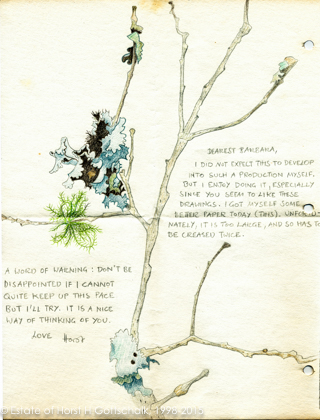 DEAREST BARBARA,
I DID NOT EXPECT THIS TO DEVELOP
INTO SUCH A PRODUCTION MYSELF,
BUT I ENJOY DOING IT, ESPECIALLY
SINCE YOU SEEM TO LIKE THESE
DRAWINGS. I GOT MYSELF SOME
BETTER PAPER TODAY (THIS). UNFORTU-
NATELY, IT IS TOO LARGE, AND SO HAS TO
BE CREASED TWICE.
A WORD OF WARNING: DON'T BE
DISAPPOINTED IF I CANNOT
QUITE KEEP UP THIS PACE
BUT I'LL TRY. IT IS A NICE
WAY OF THINKING OF YOU.
LOVE HORST
© Estate of Horst H Gottschalk, 1996-2015